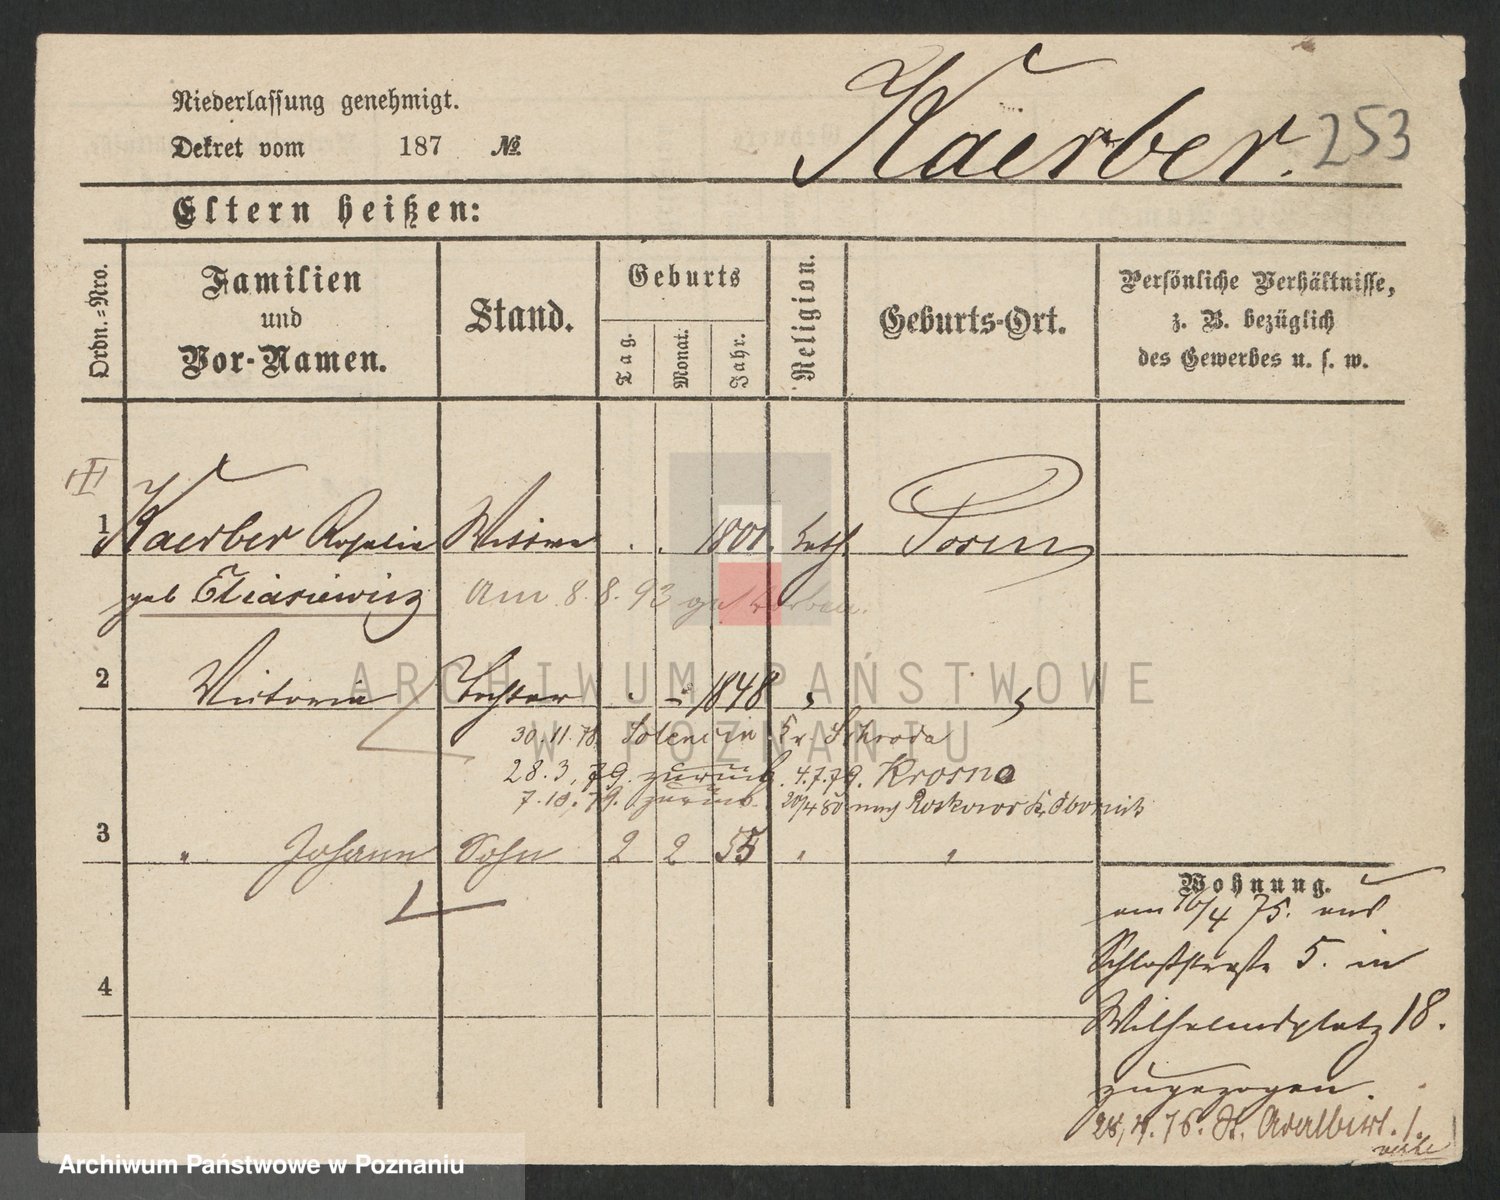 Niederlassung genehmigt.
Dekret vom 187 №
Kaerber. 253
Eltern heißen:
Ordn.-Nro.
Familien
und
Vor-Namen.
Stand.
Geburts
Tag.
Monat.
Jahr.
Religion.
Geburts-Ort.
Persönliche Verhältnisse,
z. B. bezüglich
des Gewerbes u. s. w.
1 Kaerber Rosalie Wittwe 1801. kath. Posen
geb Eliasiewicz Am 8.8.93 gestorben.
2 Victoria Tochter 1848
30.11.78. Kr. Schroda
28.3.79. zurück. 4.7.79. Krosno
7.10.79. zurück. 20/4 80 nach Kr. Obornik
3 " Johann Sohn 2 2 55 " "
Wohnung.
am 16/4 75. aus
Schloßstraße 5. in
4
Wilhelmsplatz 18.
zugezogen.
St. Adalbert. 1.
ARCHIWUM PAŃSTWOWE
W POZNANIU
Archiwum Państwowe w Poznaniu